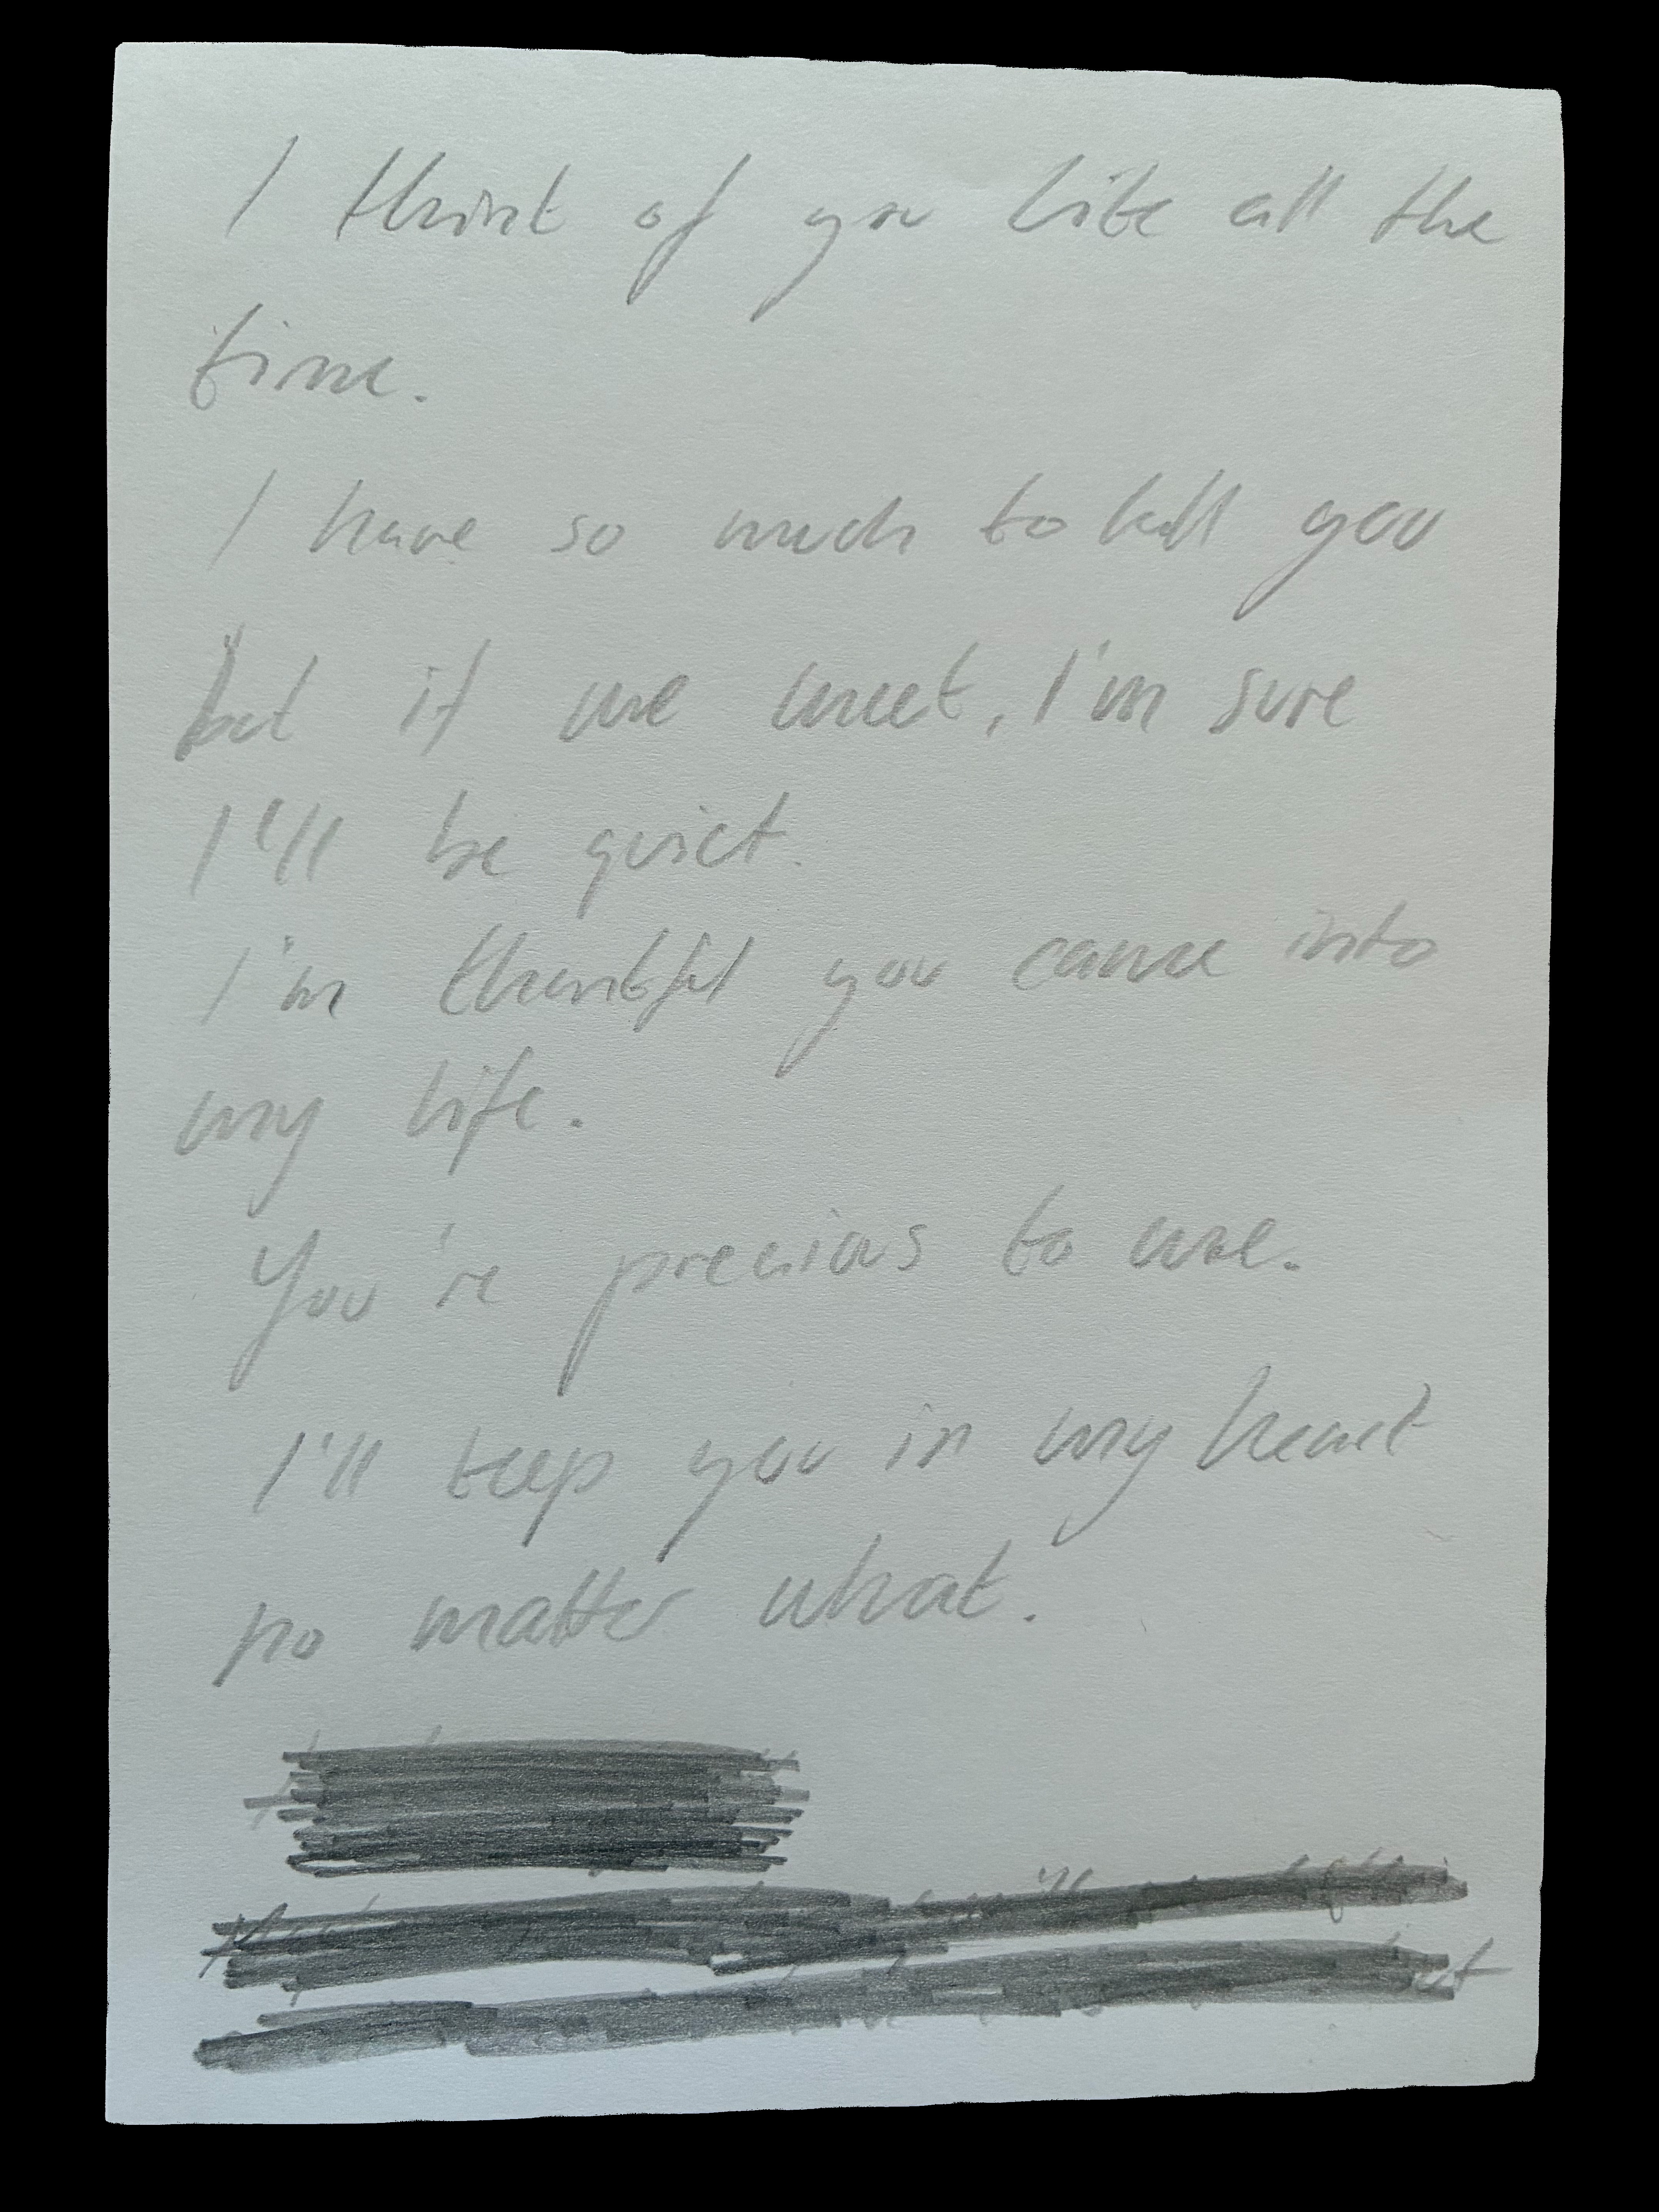 I think of you like all the
time.
I have so much to tell you
but if we meet, I'm sure
I'll be quiet.
I'm thankful you came into
my life.
You're precious to me.
I'll keep you in my heart
no matter what.